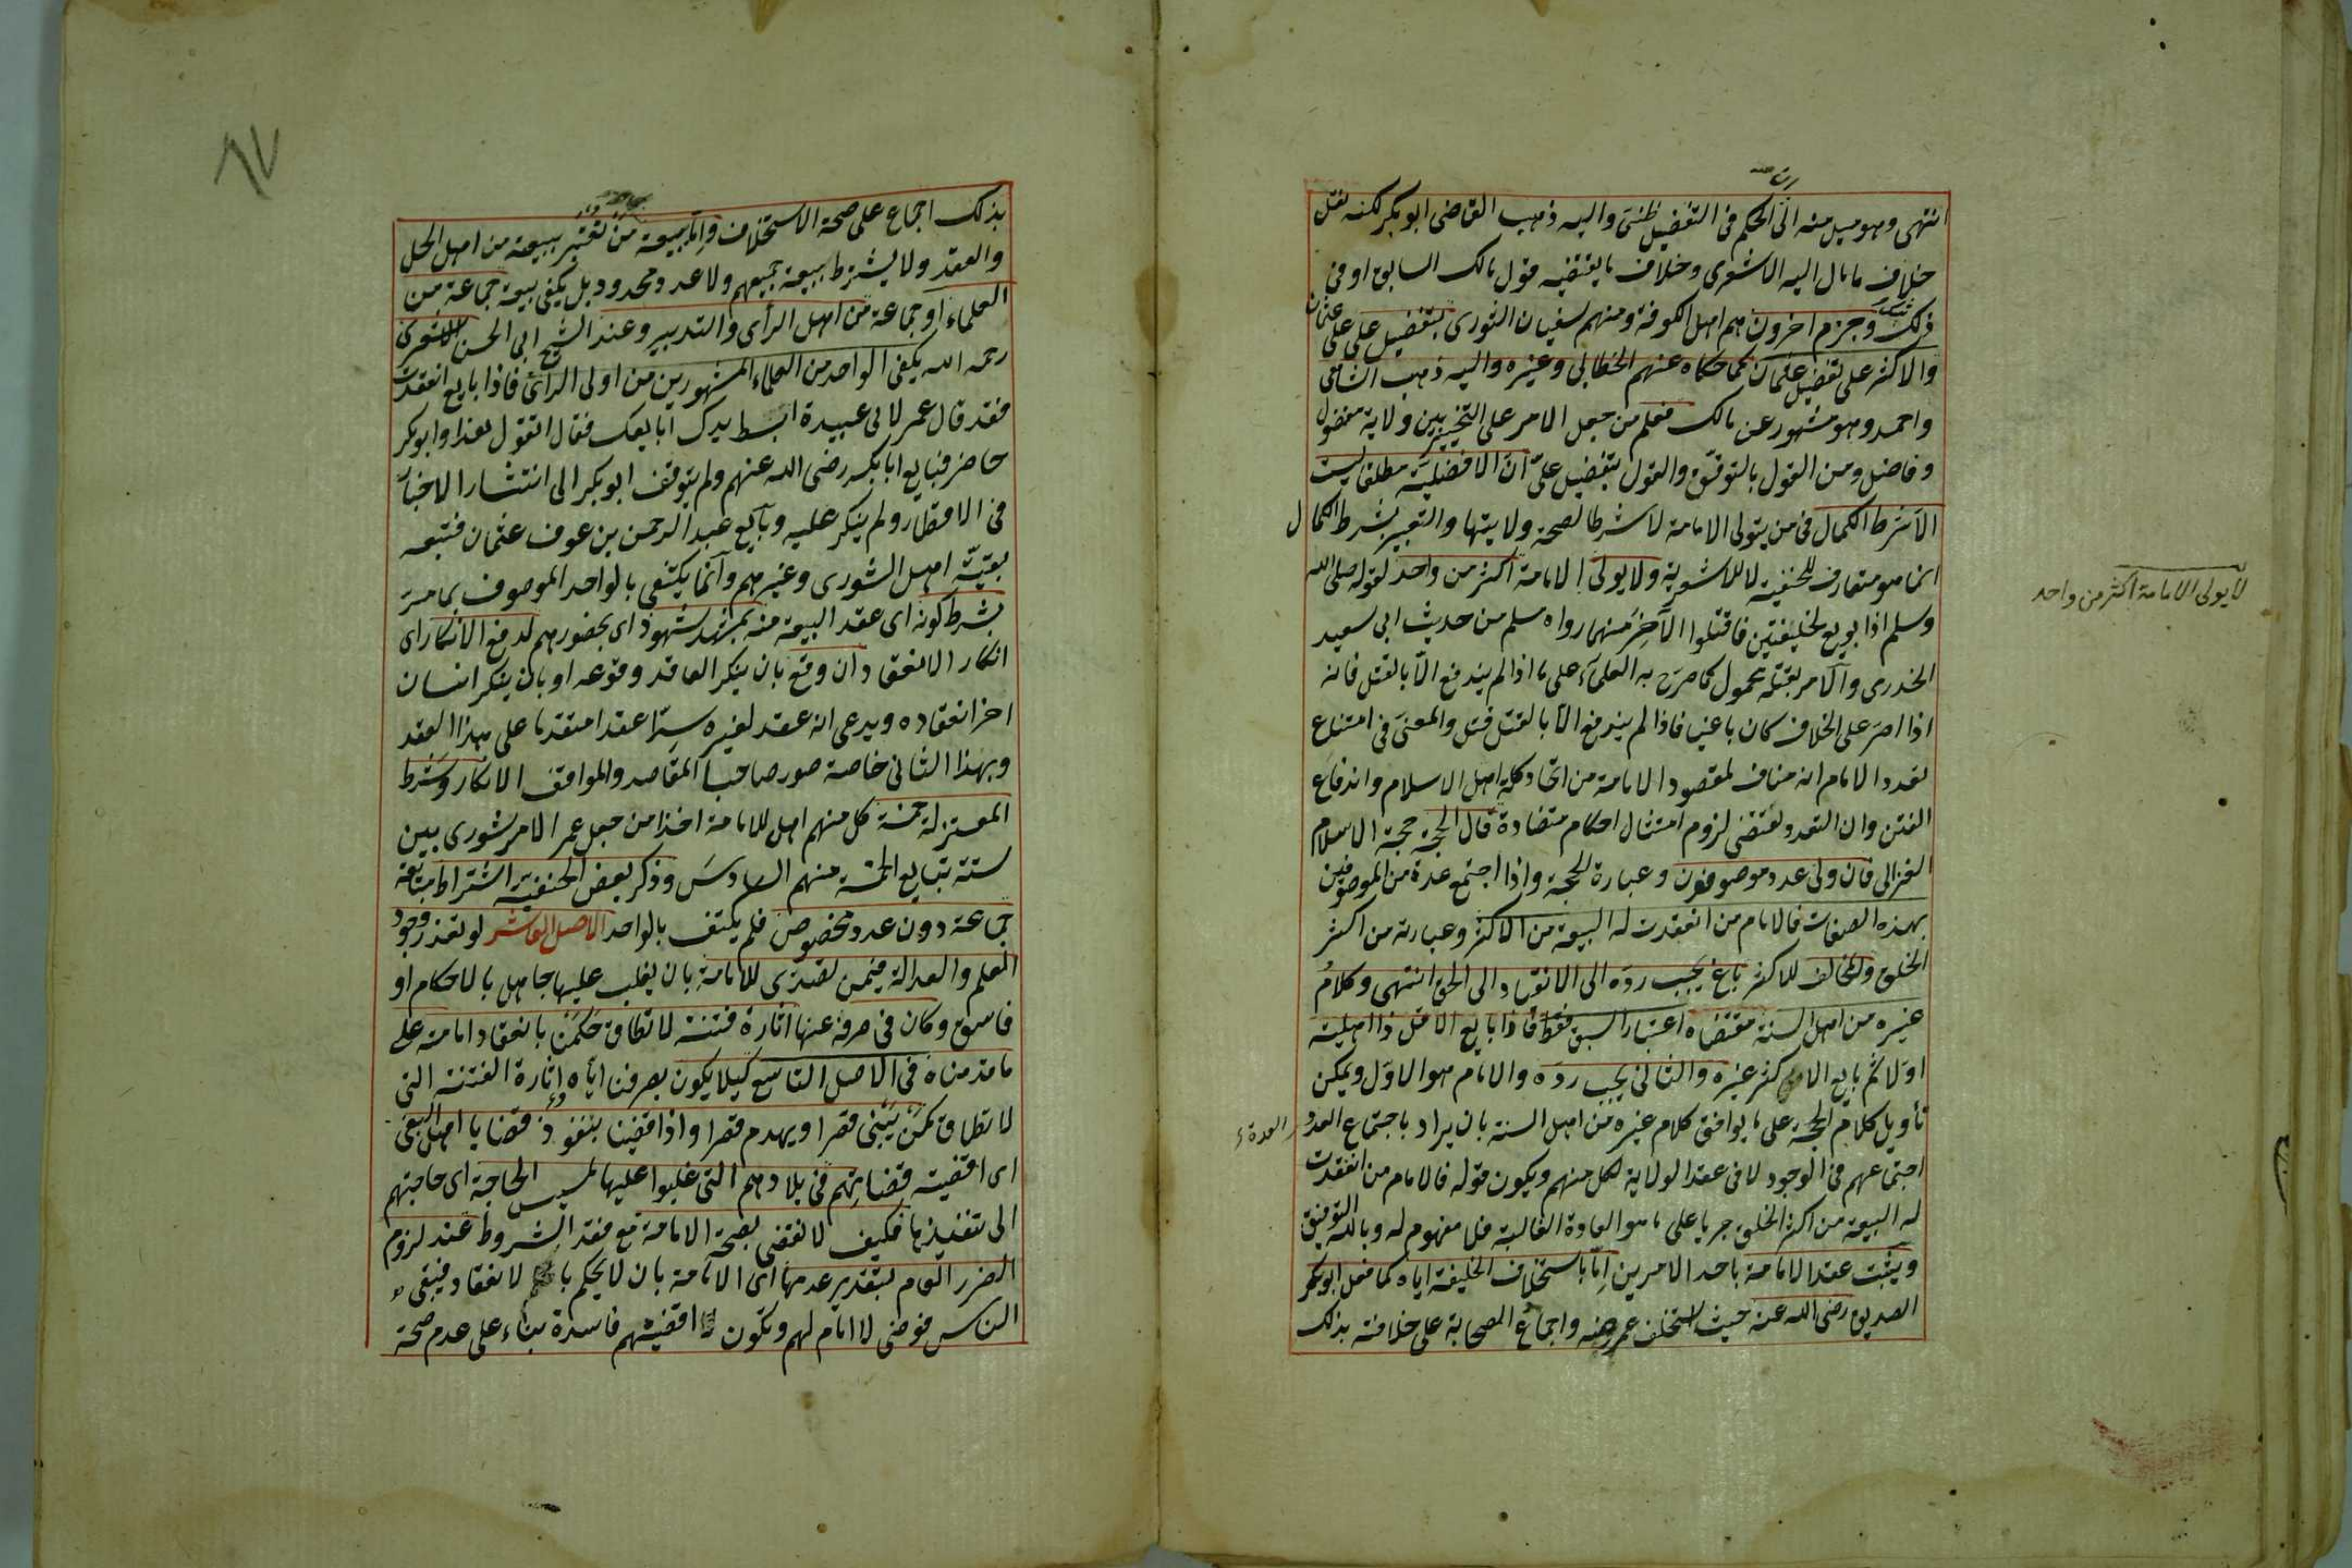 انتهى وهو ميل منه الى ان الحكم فى التفضيل ظنى واليه ذهب القاضى ابو بكر لكنه نقل
خلاف ما مال اليه الاشعرى وخلاف ما يقتضيه قول مالك السابق او فى
ذلك شك وجزم اخرون هم اهل الكوفة ومنهم سفيان الثورى بتفضيل على على عثمان
والاكثر على تفضيل عثمان كما حكاه عنهم الخطابى وغيره واليه ذهب الشافعى
واحمد وهو مشهور عن مالك فعلم من جعل الامر على التخيير بين ولاية مفضول
وفاضل ومن القول بالتوقف والقول بتفضيل على ان الافضلية مطلقا ليست
الا شرط الكمال فى من يتولى الامامة لا شرطا لصحة ولايتها والتعبير بشرط الكمال
انما هو متعارف للحنفية لا للاشعرية ولا يولى الامامة اكثر من واحد لقوله صلى الله
وسلم اذا بويع لخليفتين فاقتلوا الاخر منهما رواه مسلم من حديث ابى سعيد
الخدرى والامر بقتله محمول كما صرح به العلماء على ما اذا لم يندفع الا بالقتل فانه
اذا اصر على الخلاف كان باغيا فاذا لم يندفع الا بالقتل قتل والمعنى فى امتناع
تعدد الامام انه مناف لمقصود الامامة من اتحاد كلمة اهل الاسلام واندفاع
الفتن وان التعدد يقتضى لزوم امتثال احكام متضادة قال الحجة حجة الاسلام
الغزالى فان ولى عدد موصوفون وعبارة الحجة واذا اجتمع عدة من الموصوفين
بهذه الصفات فالامام من انعقدت له البيعة من الاكثر وعبارته من اكثر
الخلق والمخالف للاكثر باغ يجب رده الى الانقياد الى الحق انتهى وكلام
غيره من اهل السنة مقتضاه اعتبار السبق فقط فاذا بايع الاقل ذا اهلية
اولا ثم بايع الاكثر غيره والثانى يجب رده والامام هو الاول ويمكن
تأويل كلام الحجة على ما يوافق كلام غيره من اهل السنة بان يراد باجتماع العدد
العدة
اجتماعهم فى الوجود لا فى عقد الولاية لكل منهم ويكون قوله فالامام من انعقدت
له البيعة من اكثر الخلق جريا على ما هو العادة الغالبة فلا مفهوم له وبالله التوفيق
ويثبت عقد الامامة باحد الامرين اما باستخلاف الخليفة اياه كما فعل ابو بكر
الصديق رضى الله عنه حيث استخلف عمر رضى عنه واجماع الصحابة على خلافته بذلك
لا يولى الامامة اكثر من واحد
٨٧
بذلك اجماع على صحة الاستخلاف واما ببيعة من تعتبر بيعته من اهل الحل
والعقد ولا يشترط بيعة جميعهم ولا عدد محدود بل يكفى بيعة جماعة من
العلماء او جماعة من اهل الرأى والتدبير وعند الشيخ ابى الحسن الاشعرى
رحمه الله يكفى الواحد من العلماء المشهورين من اولى الرأى فاذا بايع انعقدت
فقد قال عمر لابى عبيدة ابسط يدك ابايعك فقال اتقول هذا وابو بكر
حاضر فبايع ابا بكر رضى الله عنهم ولم يتوقف ابو بكر الى انتشار الاخبار
فى الاقطار ولم ينكر عليه وبايع عبد الرحمن بن عوف عثمان فتبعه
بقية اهل الشورى وغيرهم وانما يكتفى بالواحد الموصوف بما مر
بشرط كونه اى عقد البيعة منه بمشهد شهود اى بحضورهم لدفع الانكار اى
انكار الانعقاد ان وقع بان ينكر العاقد وقوعه او بان ينكر انسان
اخر انعقاده ويدعى انه عقد لغيره سرا عقدا متقدما على هذا العقد
وبهذا الثانى خاصة صور صاحبا المقاصد والمواقف الانكار وشرط
المعتزلة خمسة كل منهم اهل للامامة اخذا من جعل عمر الامر شورى بين
ستة تبايع الخمسة منهم السادس وذكر بعض الحنفية اشتراط مبايعة
جماعة دون عدد مخصوص فلم يكتف بالواحد الاصل العاشر لو تعذر وجود
العلم والعدالة فيمن تصدى للامامة بان يغلب عليها جاهل بالاحكام او
فاسق وكان فى صرفه عنها اثارة فتنة لا تطاق حكمنا بانعقاد امامته على
ما قدمناه فى الاصل التاسع كيلا يكون بصرفنا اياه واثارة الفتنة التى
لا تطاق كمن يبنى قصرا ويهدم قصرا واذا قضينا بنفوذ قضايا اهل البغى
اى اقضية قضاتهم فى بلادهم التى غلبوا عليها لمسيس الحاجة اى حاجتهم
الى تنفيذها فكيف لا نقضى بصحة الامامة مع فقد الشروط عند لزوم
الضرر العام بتقدير عدمها اى الامامة بان لا يحكم بالانعقاد فيبقى
الناس فوضى لا امام لهم وتكون اقضيتهم فاسدة بناء على عدم صحة